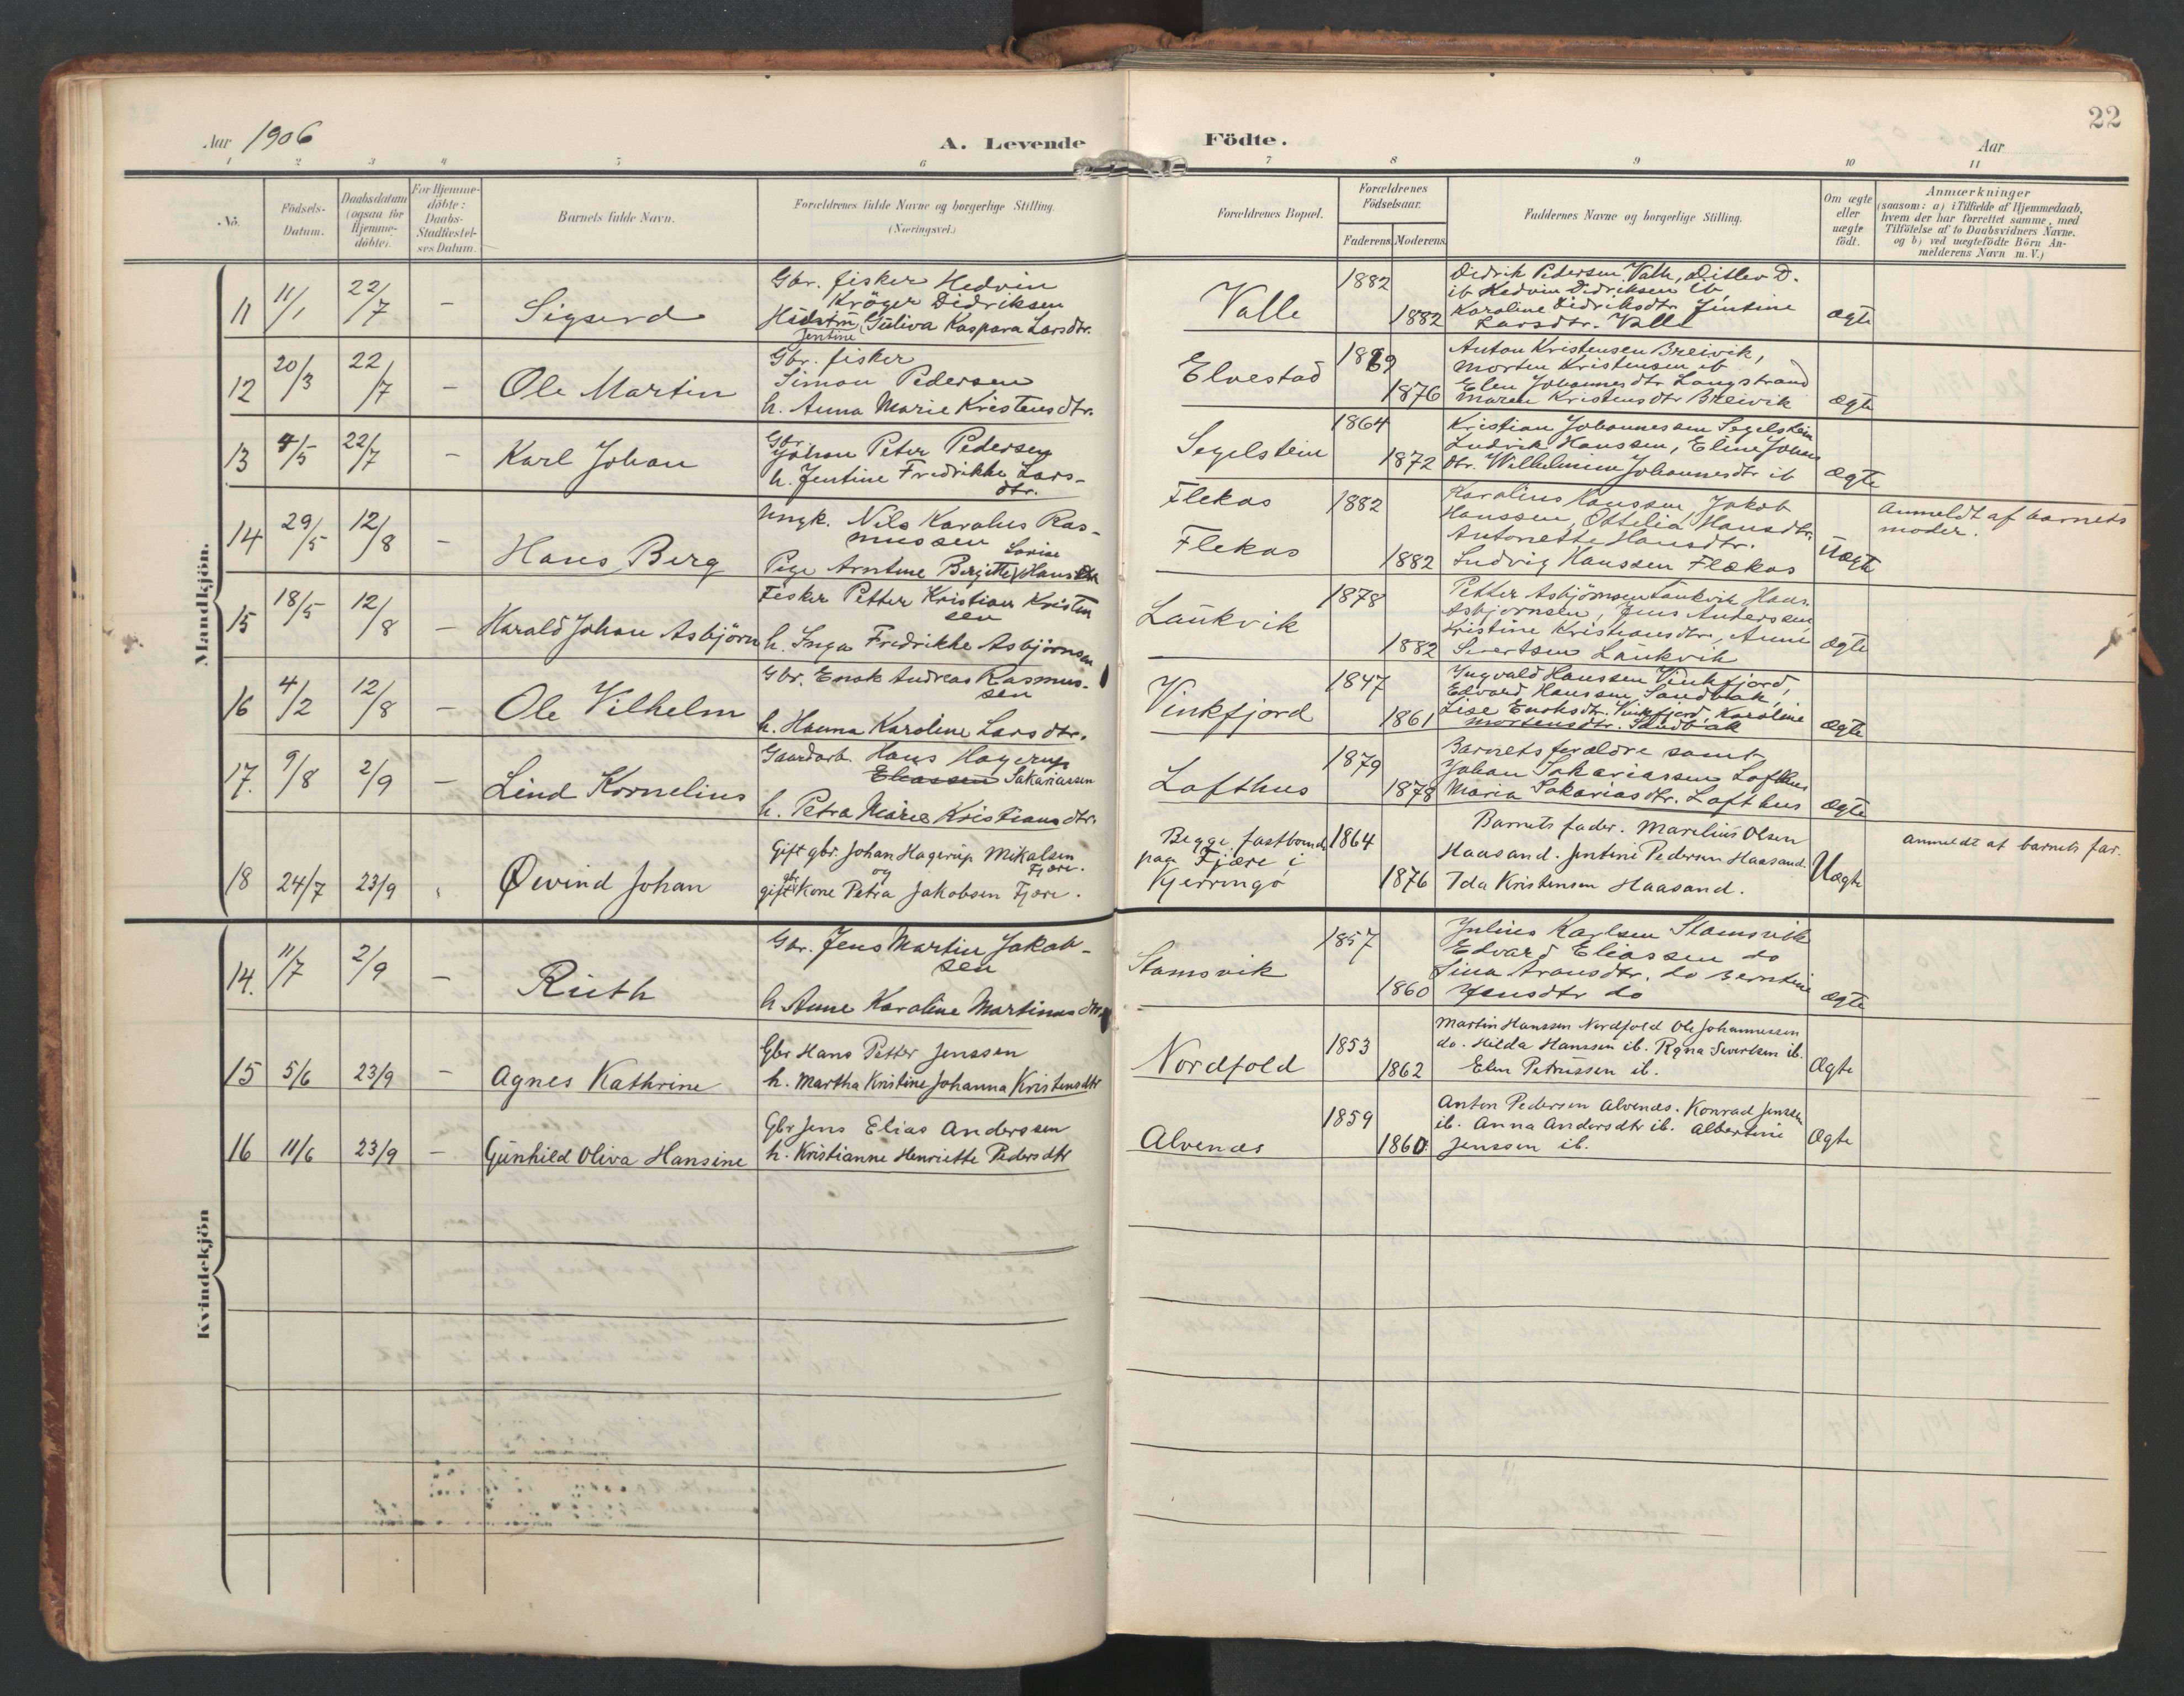 Aar 1906
A. Levende Födte.
Aar
22
1 2 3 4 5 6 7 8 9 10 11
No.
Födsels-
Datum.
Daabsdatum
(ogsaa for
Hjemme-
döbte).
For Hjemme-
döbte:
Daabs-
Stadfæstel-
ses Datum.
Barnets fulde Navn.
Forældrenes fulde Navne og borgerlige Stilling.
(Næringsvei.)
Forældrenes Bopæl.
Forældrenes
Födselsaar.
Faderens. Moderens.
Faddernes Navne og borgerlige Stilling.
Om ægte
eller
uægte
födt.
Anmærkninger
(saasom: a) i Tilfælde af Hjemmedaab,
hvem der har forrettet samme, med
Tilföielse af to Daabsvidners Navne.
og b) ved uægtefödte Börn An-
melderens Navn m. V.)
Mandkjön.
11 11/1 22/7 – Sigurd
Gbr. fisker Hedvin
Kröger Didriksen
Hustru Güliva Kaspara Larsdtr.
Jentine
Valle
1882
1882
Didrik Pedersen Valle, Ditlev D.
ib Hedvin Didriksen ib
Karoline Didriksdtr Jentine
Larsdtr. Valle
ægte
12 20/3 22/7 – Ole Martin
Gbr. fisker
Simon Pedersen
h. Anna Marie Kristensdtr.
Elvestad
1869
1876
Anton Kristensen Breivik,
Morten Kristensen ib
Elen Johannesdtr Langstrand
Maren Kristensdtr Breivik
ægte
13 4/5 22/7 – Karl Johan
Gbr.
Johan Peter Pedersen
h. Jentine Fredrikke Lars-
dtr.
Segelstein
1864
1872
Kristian Johannessen Segelstein
Ludvik Hanssen, Eline Johns
dtr. Wilhelmine Johannesdtr ib
ægte
14 29/5 12/8 – Hans Berg
Ungk. Nils Karolus Ras-
mussen
Lovise
Pige Arntine Bergitte Hansdtr
Flekas
Flekas
1882
1882
Karolius Hanssen, Jakob
Hanssen, Ottilia Hansdtr.
Antonette Hansdtr.
Ludvig Hanssen Flækas
Uægte
Anmeldt af barnets
moder.
15 18/5 12/8 – Harald Johan Asbjörn
Fisker Petter Kristian Kristen
sen
h. Inga Fredrikke Asbjörnsen
Laukvik
1878
1882
Petter Asbjörnsen Laukvik Hans
Asbjornsen, Jens Andersen
Kristine Kristiansdtr, Anne
Sivertsen Laukvik
ægte
16 4/2 12/8 – Ole Vilhelm
Gbr. Enok Andreas Rasmus-
sen
h. Hanna Karoline Larsdtr.
Vinkfjord
1847
1861
Ingvald Hanssen Vinkfjord,
Edvard Hanssen Sandbak,
Lise Enoksdtr. Vinkfjord, Karoline
Mortensdtr. Sandbak
ægte
17. 9/8 2/9 – Lind Kornelius
Gaardarb. Hans Hagerup
Eliassen Sakariassen
h. Petra Marie Kristiansdtr.
Lofthus
1879
1878
Barnets forældre samt
Johan Sakariassen Lofthus
Maria Sakariasdtr. Lofthus
ægte
18 24/7 23/9 Øivind Johan
Gift gbr. Johan Hagerup Mikalsen
og Fjære.
gift gbr Kone Petra Jakobsen Fjære.
Begge fastboende
paa Fjære i
Kjerringö
1864
1876
Barnets fader. Marelius Olsen
Haasand. Jentine Pedersen Haasand
Ida Kristensen Haasand.
Uægte
Anmeldt af barnets far.
Kvindekjön
14. 11/7 2/9 – Ruth
Gbr. Jens Martin Jakob-
sen
h Anne Karoline Martinusdtr.
Stamsvik
1857
1860
Julius Karlsen Stamsvik
Edvard Eliassen do
Lina Aronsdtr. do Berntine
Jensdtr do
ægte
15 5/6 23/9 – Agnes Kathrine
Gbr Hans Petter Jenssen
h. Martha Kristine Johanna Kristensdtr
Nordfold
1853
1862
Martin Hanssen Nordfold Ole Johannessen
do. Hilda Hanssen ib. Ragna Sivertsen ib.
Elen Petrussen ib.
Ægte
16 11/6 23/9 – Gunhild Oliva Hansine
Gbr Jens Elias Anderssen
h. Kristianne Henriette Pedersdtr
Alvenæs
1859
1860
Anton Pedersen Alvenæs. Konrad Jenssen
ib. Anna Andersdtr ib. Albertine
Jenssen ib.
Ægte